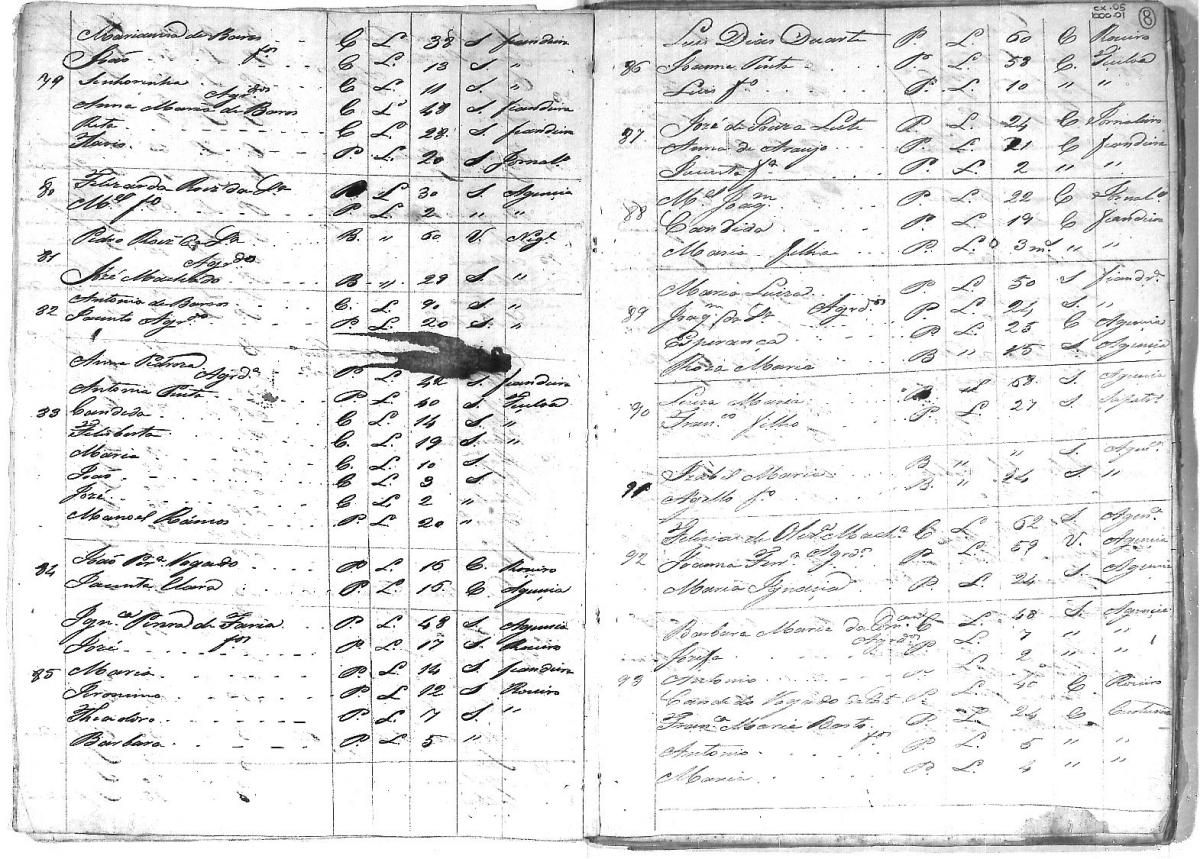 Marianna de Barros C. L. 38 S. fiandeira
João fos C. L. 13 S. "
79 Senhorinha C. L. 11 S. "
Agrdos
Anna Maria de Barros C. L. 48 S. fiandeira
Rita C. L. 28 S. fiandeira
P. L. 20 S. Jornalo
80 Felizarda Roiz da Sa L. 30 S. Agencia
Mel fo P. L. 2 " "
Pedro Roiz B. " 60 V. Nego
81 Agrdo
José Machado B " 29 S. "
Antonia de Barros C. L. 90 S. "
82 Jacinto Agrdo P. L. 20 S. "
Anna Pedroza P. L. 42 S. fiandeira
Agrda
Antonia Pinta P. L. 40 S. Teuloa
83 Candida C. L. 14 S. "
Feliberta C. L. 19 S. "
Maria C. L. 10 S.
João C. L. 3 S
José C L. 2 "
Manoel Ramos P. L. 20 "
84 João Pra Vogado P. L. 16 C. Roceiro
Jacinta Clara P. L. 15 C Agencia
Ignca de Faria P. L. 48 S. Agencia
José fos P. L. 17 S. Roceiro
85 Maria P. L. 14 S. fiandeira
Jeronimo P. L. 12 S. Roceiro
Theodoro P. L. 7 S. "
Barbara P. L. 5 "
cx. 05
1000.01
8
Luis Dias Duarte P. L. 60 C Roceiro
86 Joanna Pinta P. L. 58 C. Teuloa
Luis fo P. L. 10 " "
87 José de Souza Leite P. L. 24 C Jornaleiro
Anna de Araujo P. L. 21 C fiandeira
Jacinta fa P. L. 2 " "
88 Mel Joaqm P. L. 22 C Jornalo
Candida P. L. 19 C fiandeira
Maria filha P. L. 3 ms " "
Maria Luiza P. L. 50 S. fiandra
89 Joaqm Agrdos P. L. 24 S. "
Esperanca P. L. 25 C Agencia
Roza Maria B " 15 S. Agencia
90 Luiza Maria 68 S. Agencia
Franco filho P. L 27 S. Sapato
Izabel Maria B " " S. Agena
91 Agello fo B. " 24 S. "
Feliciano de Olivra Macha C L. 62 S. Agena
92 Joanna Ferra Agrda P. L. 59 V. Agencia
Maria Ignacia P. L. 24 S. Agencia
Barbara Maria da C. L. 48 S. Agencia
Agrdos
Josefa P. L. 7 " "
93 Antonio P. L. 2 " "
Candido Vogado P. L. 40 C. Roceiro
Franca Maria P. L. 24 C Custureira
Antonio fos P. L. 5 " "
Maria P. L. 4 " "